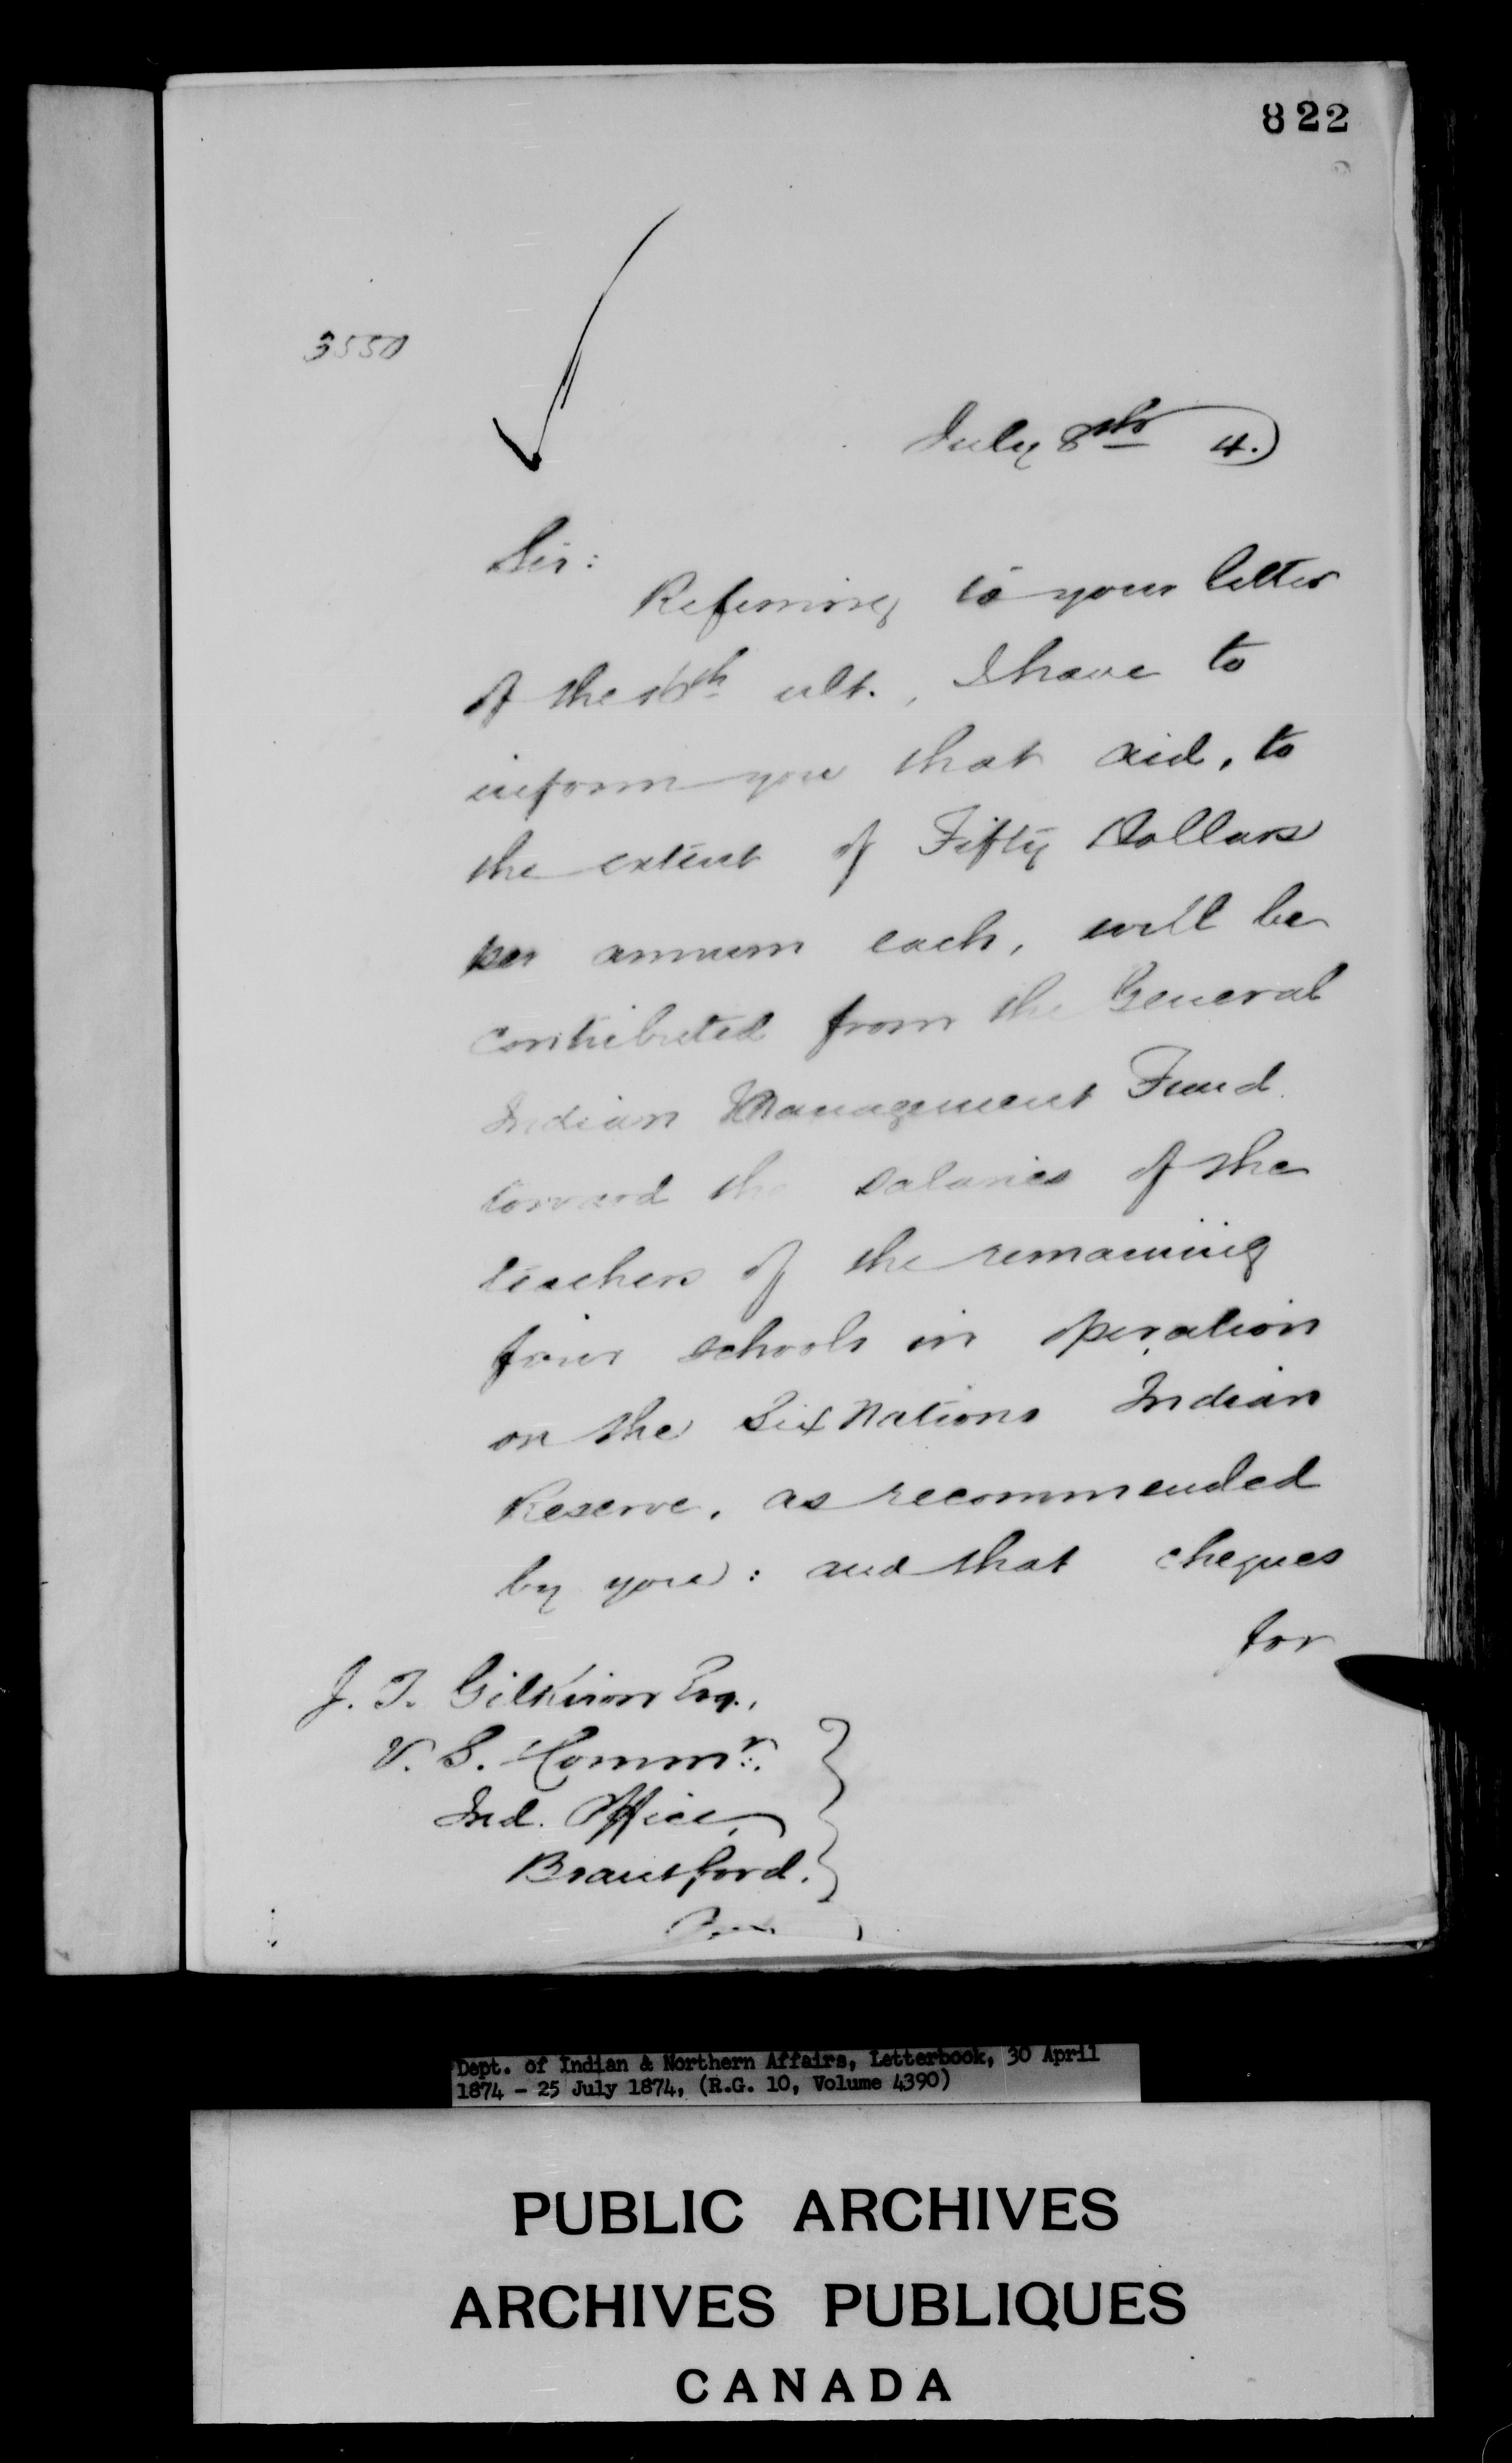 822
3550
July 8th 4.
Sir:
Referring to your letter
of the 16th ult., I have to
inform you that aid, to
the extent of Fifty Dollars
per annum each, will be
contributed from the General
Indian Management Fund
toward the salaries of the
teachers of the remaining
four schools in operation
on the Six Nations Indian
Reserve, as recommended
by you: and that cheques
for
J. T. Gilkison Esq.,
V. S. Commr.
Ind. Office,
Brantford.
Dept. of Indian & Northern Affairs, Letterbook, 30 April
1874 - 25 July 1874, (R.G. 10, Volume 4390)
PUBLIC ARCHIVES
ARCHIVES PUBLIQUES
CANADA